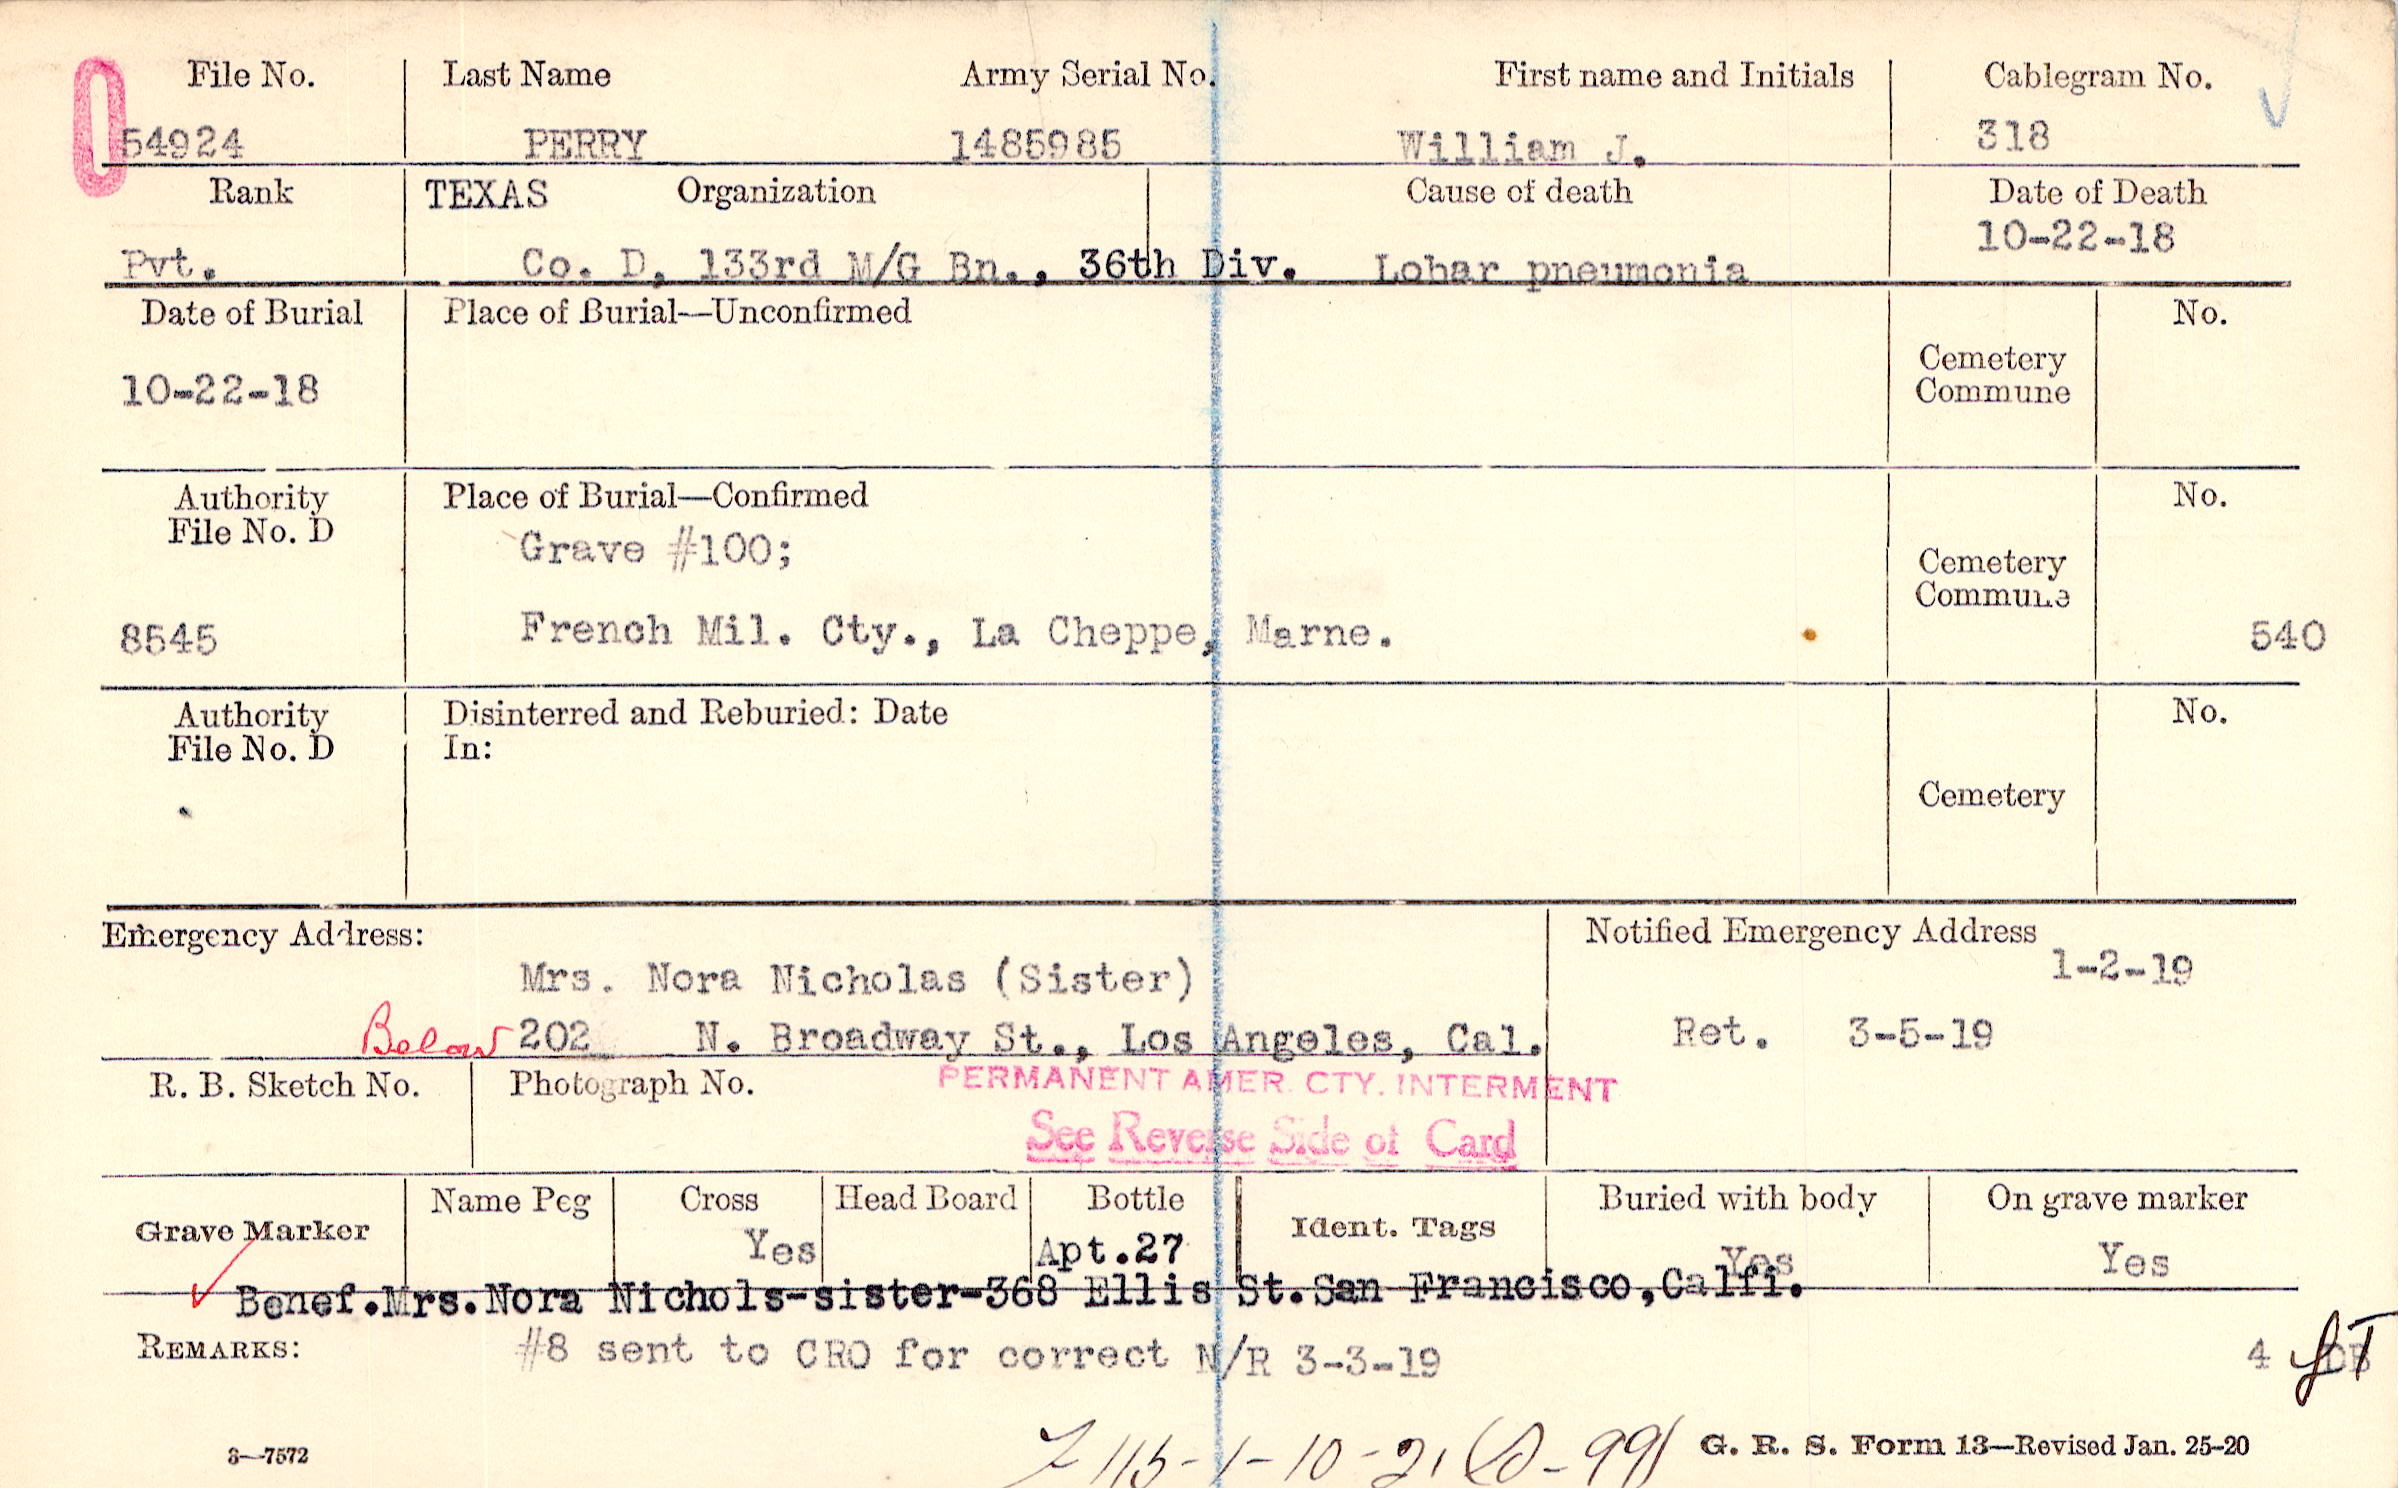 File No. Last Name Army Serial No. First name and Initials Cablegram No.
54924 PERRY 1485985 William J. 318
Rank TEXAS Organization Cause of death Date of Death
10-22-18
Pvt. Co. D, 133rd M/G Bn., 36th Div. Lobar pneumonia
Date of Burial Place of Burial—Unconfirmed No.
Cemetery
Commune
10-22-18
Authority Place of Burial—Confirmed No.
File No. D
Grave #100;
Cemetery
Commune
8545 French Mil. Cty., La Cheppe, Marne. 540
Authority Disinterred and Reburied: Date No.
File No. D In:
Cemetery
Emergency Address: Notified Emergency Address
Mrs. Nora Nicholas (Sister) 1-2-19
Below 202 N. Broadway St., Los Angeles, Cal. Ret. 3-5-19
R. B. Sketch No. Photograph No. PERMANENT AMER. CTY. INTERMENT
See Reverse Side of Card
Grave Marker Name Peg Cross Head Board Bottle Ident. Tags Buried with body On grave marker
Yes Apt.27 Yes Yes
Benef.Mrs.Nora Nichols-sister-368 Ellis St.San Francisco,Calfi.
REMARKS: #8 sent to CRO for correct N/R 3-3-19 4
3—7572 G. R. S. Form 13—Revised Jan. 25-20